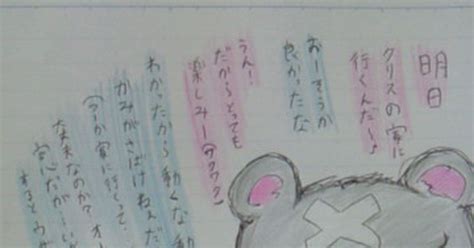 明日
クリスの家に
行くんだ〜♪
おーそうか
良かったな
うん!
だからとっても
楽しみー(ワクワク)
わかったから動くな動
かみがさばけねぇだ
(つーか家に行くって、
なのか?オ
するとうが